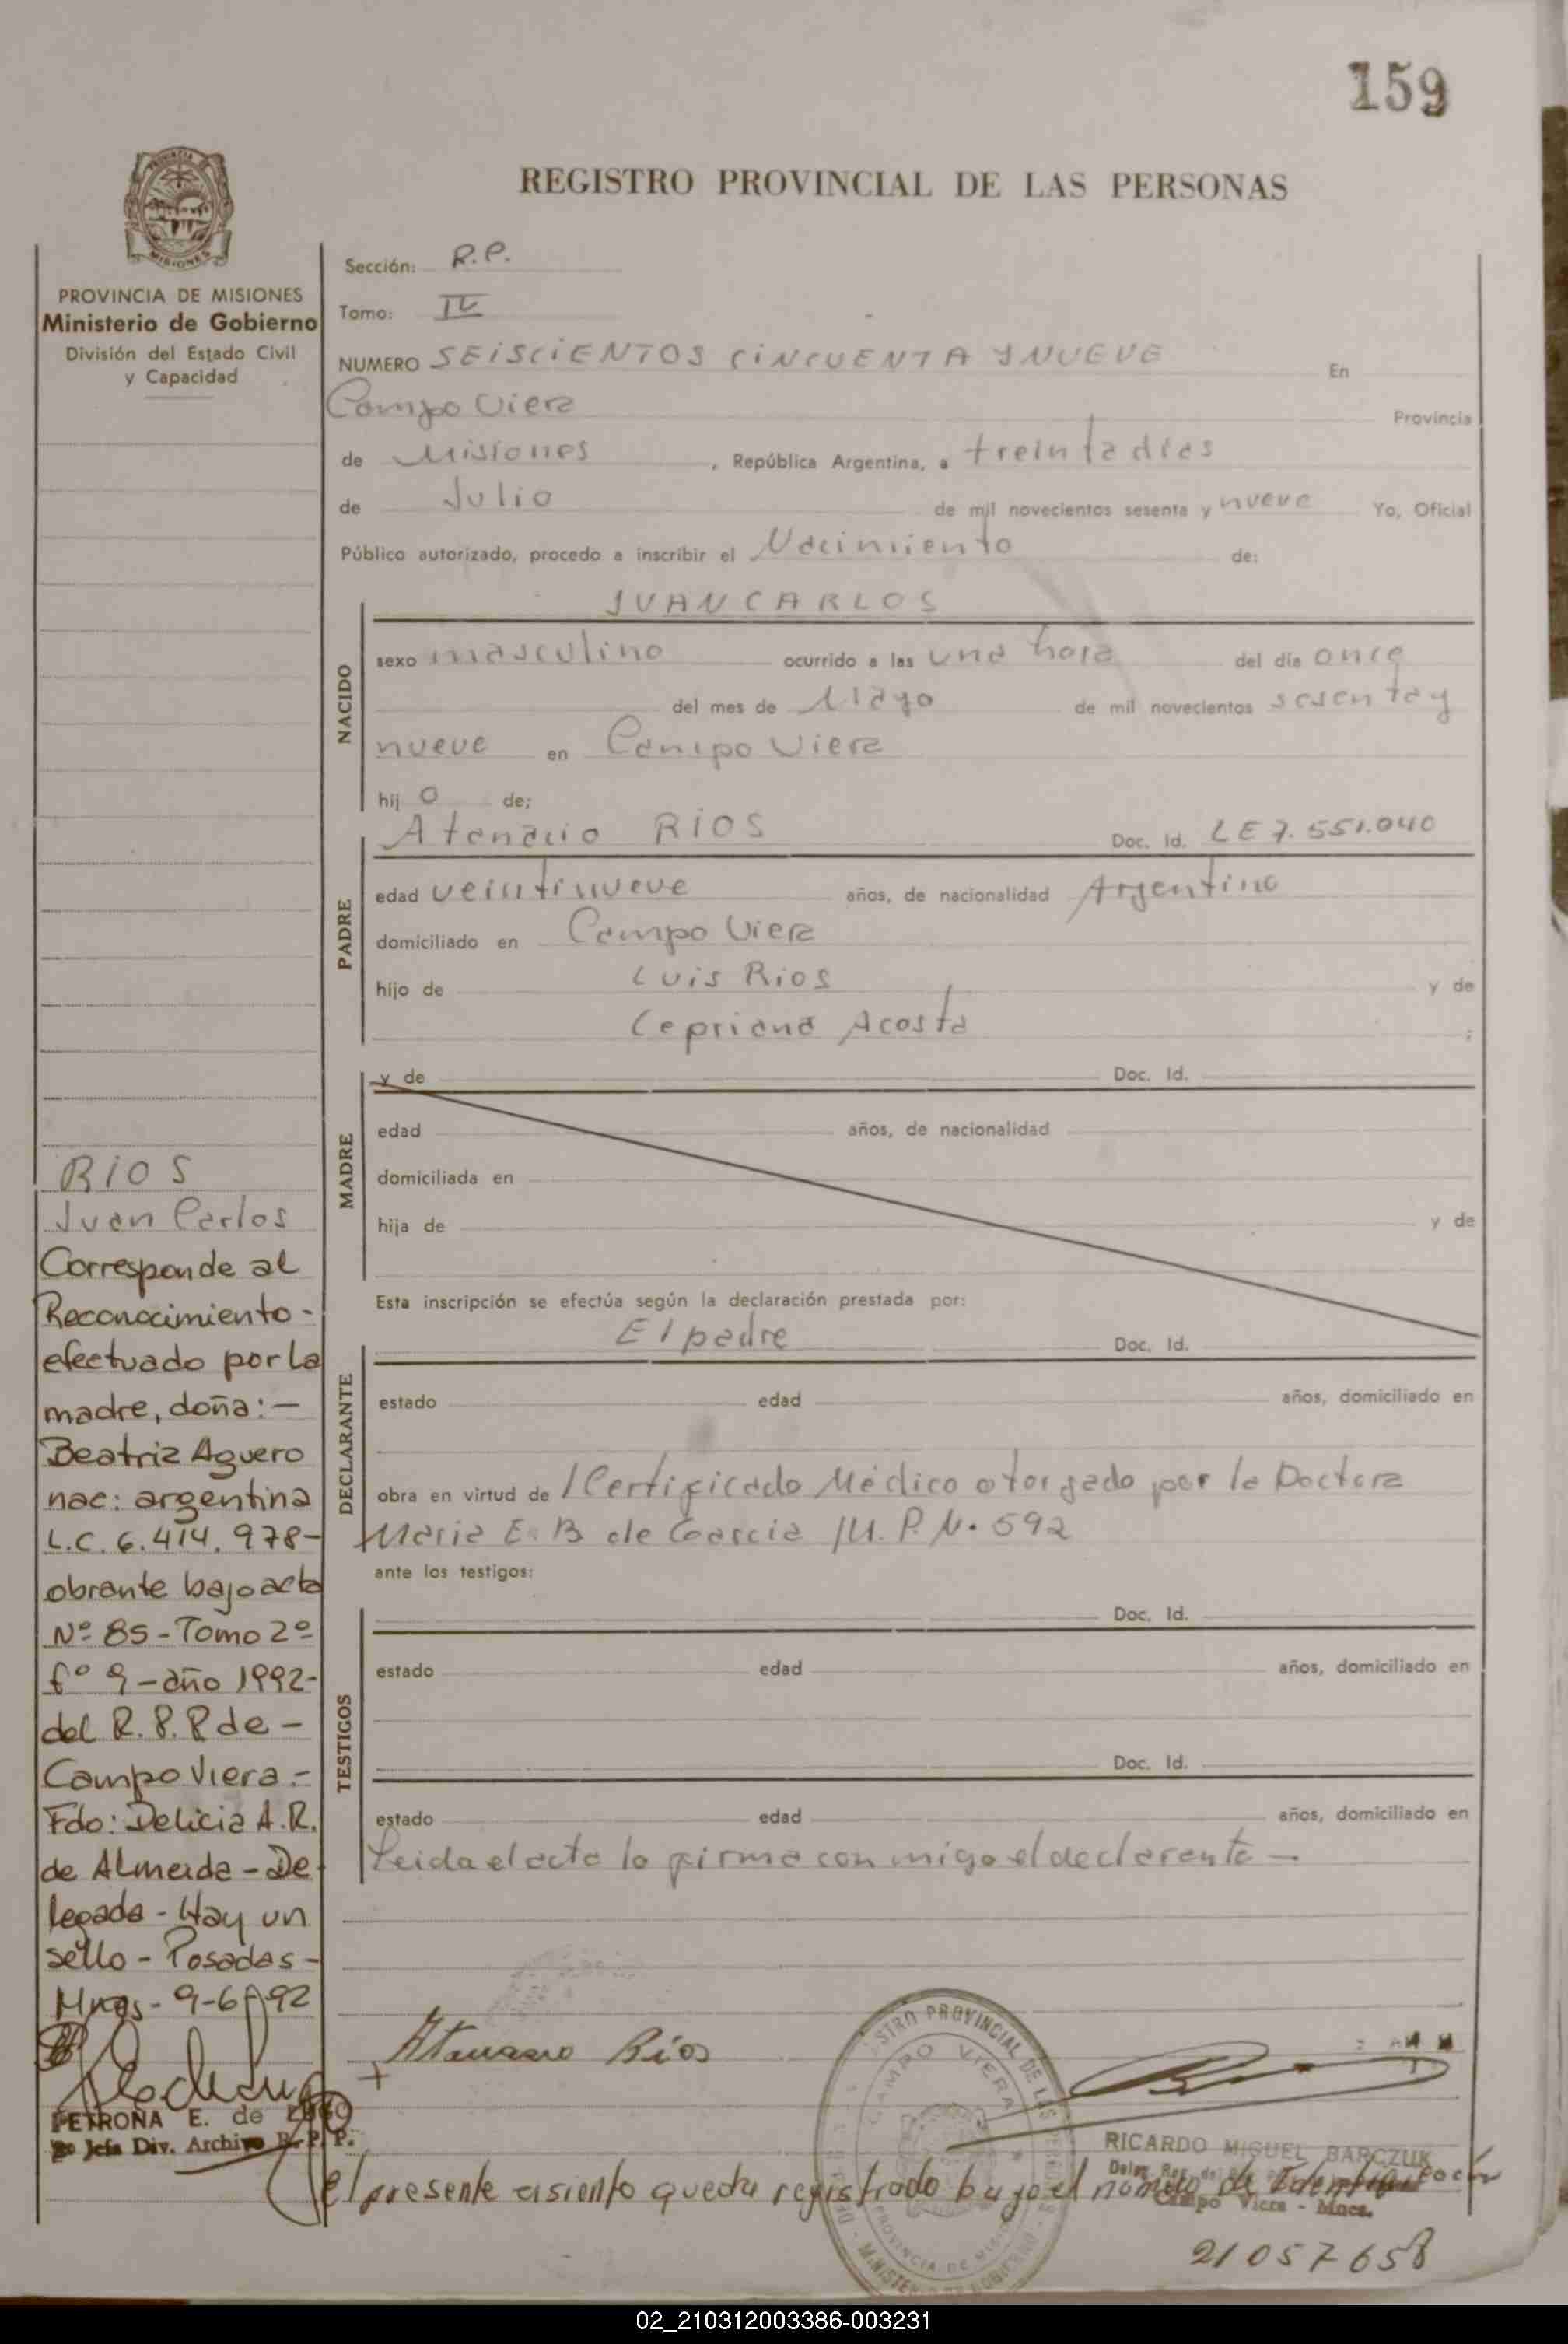 159
REGISTRO PROVINCIAL DE LAS PERSONAS
MISIONES
PROVINCIA DE MISIONES
Ministerio de Gobierno
División del Estado Civil
y Capacidad
Sección: R.P.
Tomo: IV
NUMERO SEISCIENTOS CINCUENTA Y NUEVE En
Campo Viera Provincia
de Misiones, República Argentina, a treinta dias
de Julio de mil novecientos sesenta y nueve Yo, Oficial
Público autorizado, procedo a inscribir el Nacimiento de:
NACIDO
JUAN CARLOS
sexo masculino ocurrido a las una hora del día once
del mes de Mayo de mil novecientos sesenta y
nueve en Campo Viera
hij o de;
PADRE
Atanacio RIOS Doc. Id. LE 7.551.040
edad veintinueve años, de nacionalidad Argentino
domiciliado en Campo Viera
hijo de Luis Rios y de
Cepriana Acosta ;
MADRE
y de Doc. Id.
edad años, de nacionalidad
domiciliada en
hija de y de
Esta inscripción se efectúa según la declaración prestada por:
DECLARANTE
El padre Doc. Id.
estado edad años, domiciliado en
obra en virtud de /Certificado Médico otorgado por la Doctora
Maria E. B de Garcia M.P.N. 592
ante los testigos:
TESTIGOS
Doc. Id.
estado edad años, domiciliado en
Doc. Id.
estado edad años, domiciliado en
Leida el acta la firma con migo el declarante —
RIOS
Juan Carlos
Corresponde al
Reconocimiento -
efectuado por la
madre, doña: —
Beatriz Aguero
nac: argentina
L.C. 6.414.978-
obrante bajo acta
Nº 85 - Tomo 2º
fº 9 - año 1992-
del R.P.P de -
Campo Viera.-
Fdo: Delicia A.R.
de Almeida - De
legada - Hay un
sello - Posadas -
Mnes - 9-6-92
PETRONA E. de LUGO
2º Jefa Div. Archivo R. P. P.
Atanacio Rios
REGISTRO PROVINCIAL DE LAS PERSONAS
CAMPO VIERA
PROVINCIA DE MISIONES
RICARDO MIGUEL BARCZUK
Campo Viera - Mnes.
El presente asiento queda registrado bajo el número de Identificación
21057658
02_210312003386-003231